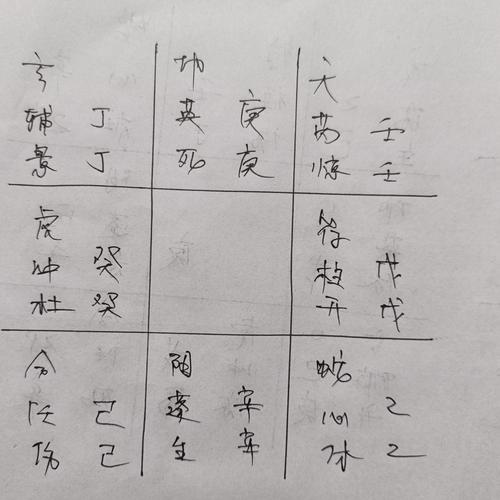 玄 地 天
辅 丁 英 庚 芮 壬
景 丁 死 庚 惊 壬
虎 符
冲 癸 柱 戊
杜 癸 开 戊
合 阴 蛇
任 己 蓬 辛 心 乙
伤 己 生 辛 休 乙